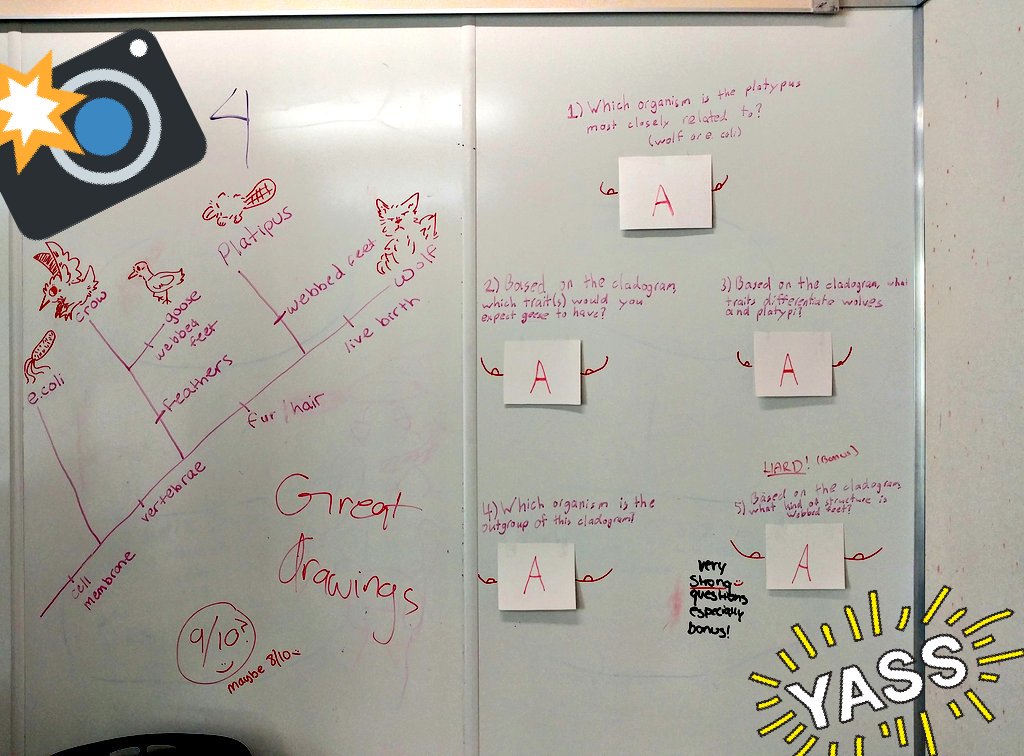 4
crow
goose
webbed
feet
Platipus
webbed feet
wolf
live birth
e.coli
feathers
fur/hair
vertebrae
cell
membrane
Great
drawings
9/10?
maybe 8/10
1) Which organism is the platypus
most closely related to?
(wolf or e. coli)
A
2) Based on the cladogram,
which trait(s) would you
expect geese to have?
A
3) Based on the cladogram, what
traits differentiate wolves
and platypi?
A
4) Which organism is the
outgroup of this cladogram?
A
HARD! (Bonus)
5) Based on the cladogram,
what kind of structure is
webbed feet?
A
very
strong
questions
especially
bonus!
YASS